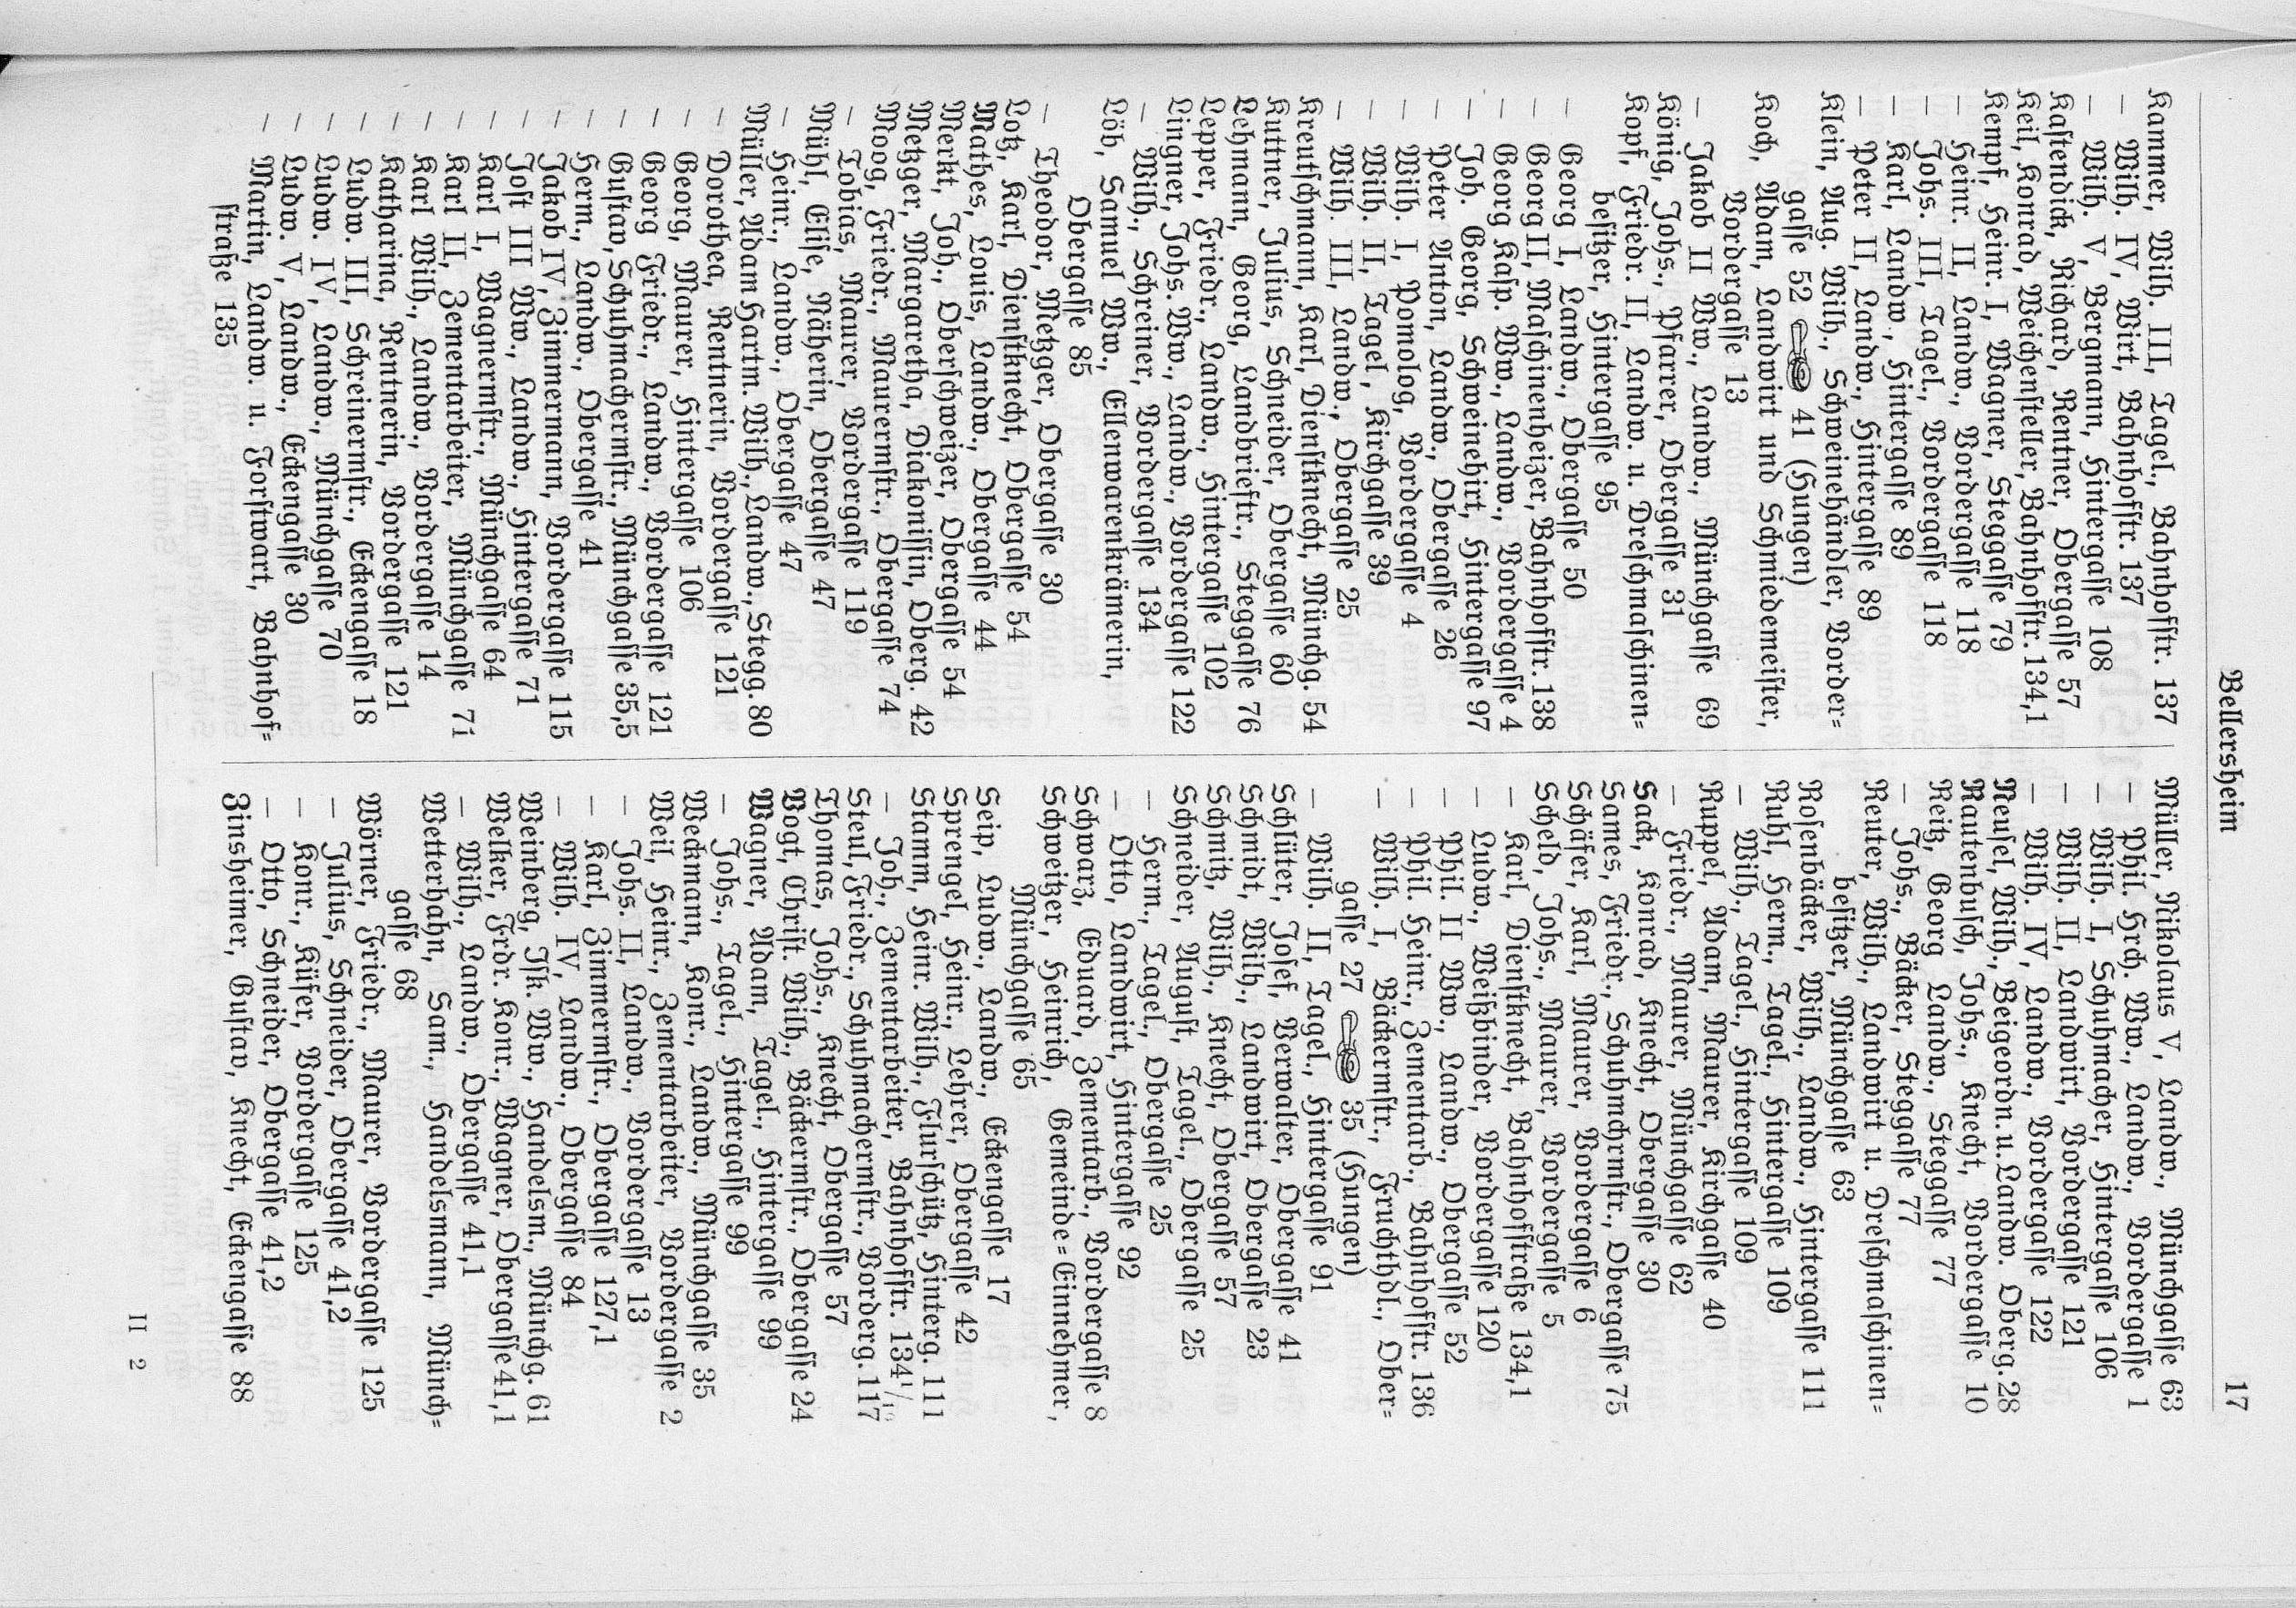 Bellersheim 17
Kammer, Wilh. III, Tagel., Bahnhofſtr. 137
— Wilh. IV, Wirt, Bahnhofſtr. 137
— Wilh. V, Bergmann, Hintergaſſe 108
Kaſtendick, Richard, Rentner, Obergaſſe 57
Keil, Konrad, Weichenſteller, Bahnhofſtr. 134,1
Kempf, Heinr. I, Wagner, Steggaſſe 79
— Heinr. II, Landw., Vordergaſſe 118
— Johs. III, Tagel., Vordergaſſe 118
— Karl, Landw., Hintergaſſe 89
— Peter II, Landw., Hintergaſſe 89
Klein, Aug. Wilh., Schweinehändler, Vorder=
gaſſe 52 41 (Hungen)
Koch, Adam, Landwirt und Schmiedemeiſter,
Vordergaſſe 13
— Jakob II Ww., Landw., Münchgaſſe 69
König, Johs., Pfarrer, Obergaſſe 31
Kopf, Friedr. II, Landw. u. Dreſchmaſchinen=
beſitzer, Hintergaſſe 95
— Georg I, Landw., Obergaſſe 50
— Georg II, Maſchinenheizer, Bahnhofſtr. 138
— Georg Kaſp. Ww., Landw., Vordergaſſe 4
— Joh. Georg, Schweinehirt, Hintergaſſe 97
— Peter Anton, Landw., Obergaſſe 26
— Wilh. I, Pomolog, Vordergaſſe 4
— Wilh. II, Tagel, Kirchgaſſe 39
— Wilh. III, Landw., Obergaſſe 25
Kreutſchmann, Karl, Dienſtknecht, Münchg. 54
Kuttner, Julius, Schneider, Obergaſſe 60
Lehmann, Georg, Landbrieftr., Steggaſſe 76
Lepper, Friedr., Landw., Hintergaſſe 102
Lingner, Johs. Ww., Landw., Vordergaſſe 122
— Wilh., Schreiner, Vordergaſſe 134
Löb, Samuel Ww., Ellenwarenkrämerin,
Obergaſſe 85
— Theodor, Metzger, Obergaſſe 30
Lotz, Karl, Dienſtknecht, Obergaſſe 54
Mathes, Louis, Landw., Obergaſſe 44
Merkt, Joh., Oberſchweizer, Obergaſſe 54
Metzger, Margaretha, Diakoniſſin, Oberg. 42
Moog, Friedr., Maurermſtr., Obergaſſe 74
— Tobias, Maurer, Vordergaſſe 119
Mühl, Eliſe, Näherin, Obergaſſe 47
— Heinr., Landw., Obergaſſe 47
Müller, Adam Hartm. Wilh., Landw., Stegg. 80
— Dorothea, Rentnerin, Vordergaſſe 121
— Georg, Maurer, Hintergaſſe 106
— Georg Friedr., Landw., Vordergaſſe 121
— Guſtav, Schuhmachermſtr., Münchgaſſe 35,5
— Herm., Landw., Obergaſſe 41
— Jakob IV, Zimmermann, Vordergaſſe 115
— Joſt III Ww., Landw., Hintergaſſe 71
— Karl I, Wagnermſtr., Münchgaſſe 64
— Karl II, Zementarbeiter, Münchgaſſe 71
— Karl Wilh., Landw., Vordergaſſe 14
— Katharina, Rentnerin, Vordergaſſe 121
— Ludw. III, Schreinermſtr., Eckengaſſe 18
— Ludw. IV, Landw., Münchgaſſe 70
— Ludw. V, Landw., Eckengaſſe 30
— Martin, Landw. u. Forſtwart, Bahnhof=
ſtraße 135
Müller, Nikolaus V, Landw., Münchgaſſe 63
— Phil. Hrch. Ww., Landw., Vordergaſſe 1
— Wilh. I, Schuhmacher, Hintergaſſe 106
— Wilh. II, Landwirt, Vordergaſſe 121
— Wilh. IV, Landw., Vordergaſſe 122
Neuſel, Wilh., Beigeordn. u. Landw. Oberg. 28
Rautenbuſch, Johs., Knecht, Vordergaſſe 10
Reitz, Georg Landw., Steggaſſe 77
— Johs., Bäcker, Steggaſſe 77
Reuter, Wilh., Landwirt u. Dreſchmaſchinen=
beſitzer, Münchgaſſe 63
Roſenbäcker, Wilh., Landw., Hintergaſſe 111
Ruhl, Herm., Tagel., Hintergaſſe 109
— Wilh., Tagel., Hintergaſſe 109
Ruppel, Adam, Maurer, Kirchgaſſe 40
— Friedr., Maurer, Münchgaſſe 62
Sack, Konrad, Knecht, Obergaſſe 30
Sames, Friedr., Schuhmchrmſtr., Obergaſſe 75
Schäfer, Karl, Maurer, Vordergaſſe 6
Scheld, Johs., Maurer, Vordergaſſe 5
— Karl, Dienſtknecht, Bahnhofſtraße 134,1
— Ludw., Weißbinder, Vordergaſſe 120
— Phil. II Ww., Landw., Obergaſſe 52
— Phil. Heinr., Zementarb., Bahnhofſtr. 136
— Wilh. I, Bäckermſtr., Fruchthdl., Ober=
gaſſe 27 35 (Hungen)
— Wilh. II, Tagel., Hintergaſſe 91
Schlüter, Joſef, Verwalter, Obergaſſe 41
Schmidt, Wilh., Landwirt, Obergaſſe 23
Schmitz, Wilh., Knecht, Obergaſſe 57
Schneider, Auguſt, Tagel., Obergaſſe 25
— Herm., Tagel., Obergaſſe 25
— Otto, Landwirt, Hintergaſſe 92
Schwarz, Eduard, Zementarb., Vordergaſſe 8
Schweitzer, Heinrich, Gemeinde=Einnehmer,
Münchgaſſe 65
Seip, Ludw., Landw., Eckengaſſe 17
Sprengel, Heinr., Lehrer, Obergaſſe 42
Stamm, Heinr. Wilh., Flurſchütz, Hinterg. 111
— Joh., Zementarbeiter, Bahnhofſtr.
Steul, Friedr., Schuhmachermſtr., Vorderg. 117
Thomas, Johs., Knecht, Obergaſſe 57
Vogt, Chriſt. Wilh., Bäckermſtr., Obergaſſe 24
Wagner, Adam, Tagel., Hintergaſſe 99
— Johs., Tagel., Hintergaſſe 99
Weckmann, Konr., Landw., Münchgaſſe 35
Weil, Heinr., Zementarbeiter, Vordergaſſe 2
— Johs. II, Landw., Vordergaſſe 13
— Karl, Zimmermſtr., Obergaſſe 127,1
— Wilh. IV, Landw., Obergaſſe 84
Weinberg, Iſk. Ww., Handelsm., Münchg. 61
Welker, Frdr. Konr., Wagner, Obergaſſe 41,1
— Wilh., Landw., Obergaſſe 41,1
Wetterhahn, Sam., Handelsmann, Münch=
gaſſe 68
Wörner, Friedr., Maurer, Vordergaſſe 125
— Julius, Schneider, Obergaſſe 41,2
— Konr., Küfer, Vordergaſſe 125
— Otto, Schneider, Obergaſſe 41,2
Zinsheimer, Guſtav, Knecht, Eckengaſſe 88
II 2